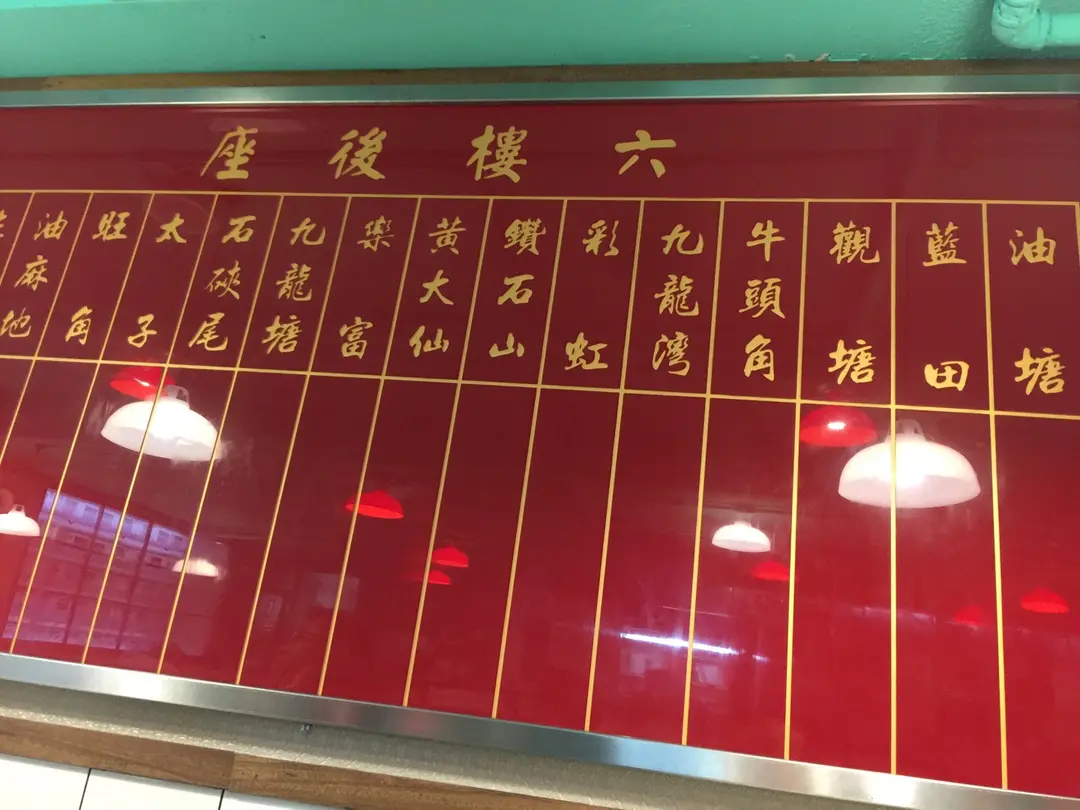 六樓後座
油塘
藍田
觀塘
牛頭角
九龍灣
彩虹
鑽石山
黃大仙
樂富
九龍塘
石硤尾
太子
旺角
油麻地